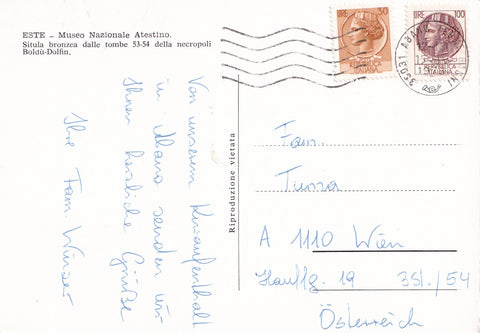 ESTE – Museo Nazionale Atestino.
Situla bronzea dalle tombe 53-54 della necropoli
Boldù-Dolfin,
Von unserem Kuraufenthalt
in Abano senden wir
Ihnen herzliche Grüße
Ihre Fam
Riproduzione vietata
LIRE 30
ITALIANA
LIRE 100
REPUBBLICA
ITALIANA
35031 ABANO
Fam.
A 1110 Wien
Hauffg. 19 3St./54
Österreich